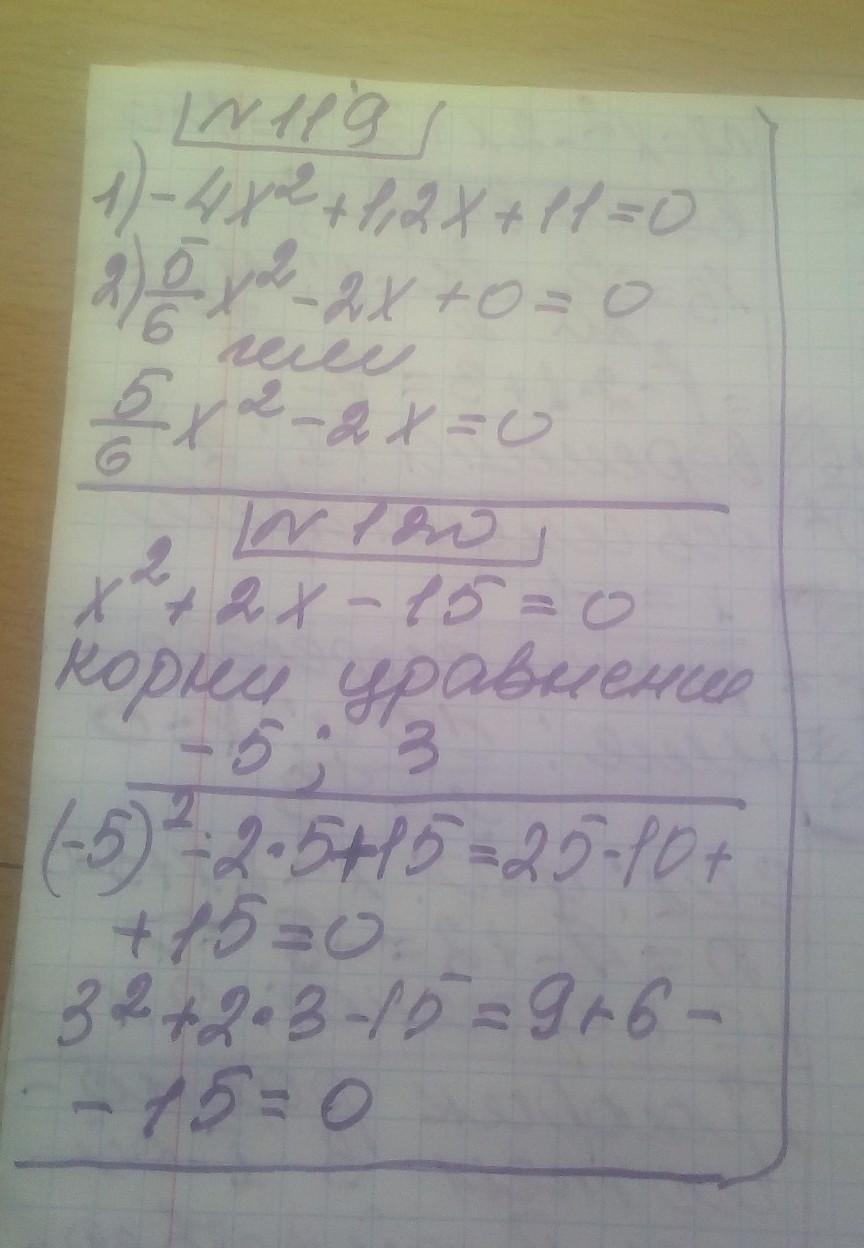 N119
1) -4x² + 1,2x + 11 = 0
2) 5/6 x² - 2x + 0 = 0
или
5/6 x² - 2x = 0
N120
x² + 2x - 15 = 0
корни уравнения
-5; 3
(-5)² - 2·5 + 15 = 25 - 10 +
+ 15 = 0
3² + 2·3 - 15 = 9 + 6 -
- 15 = 0